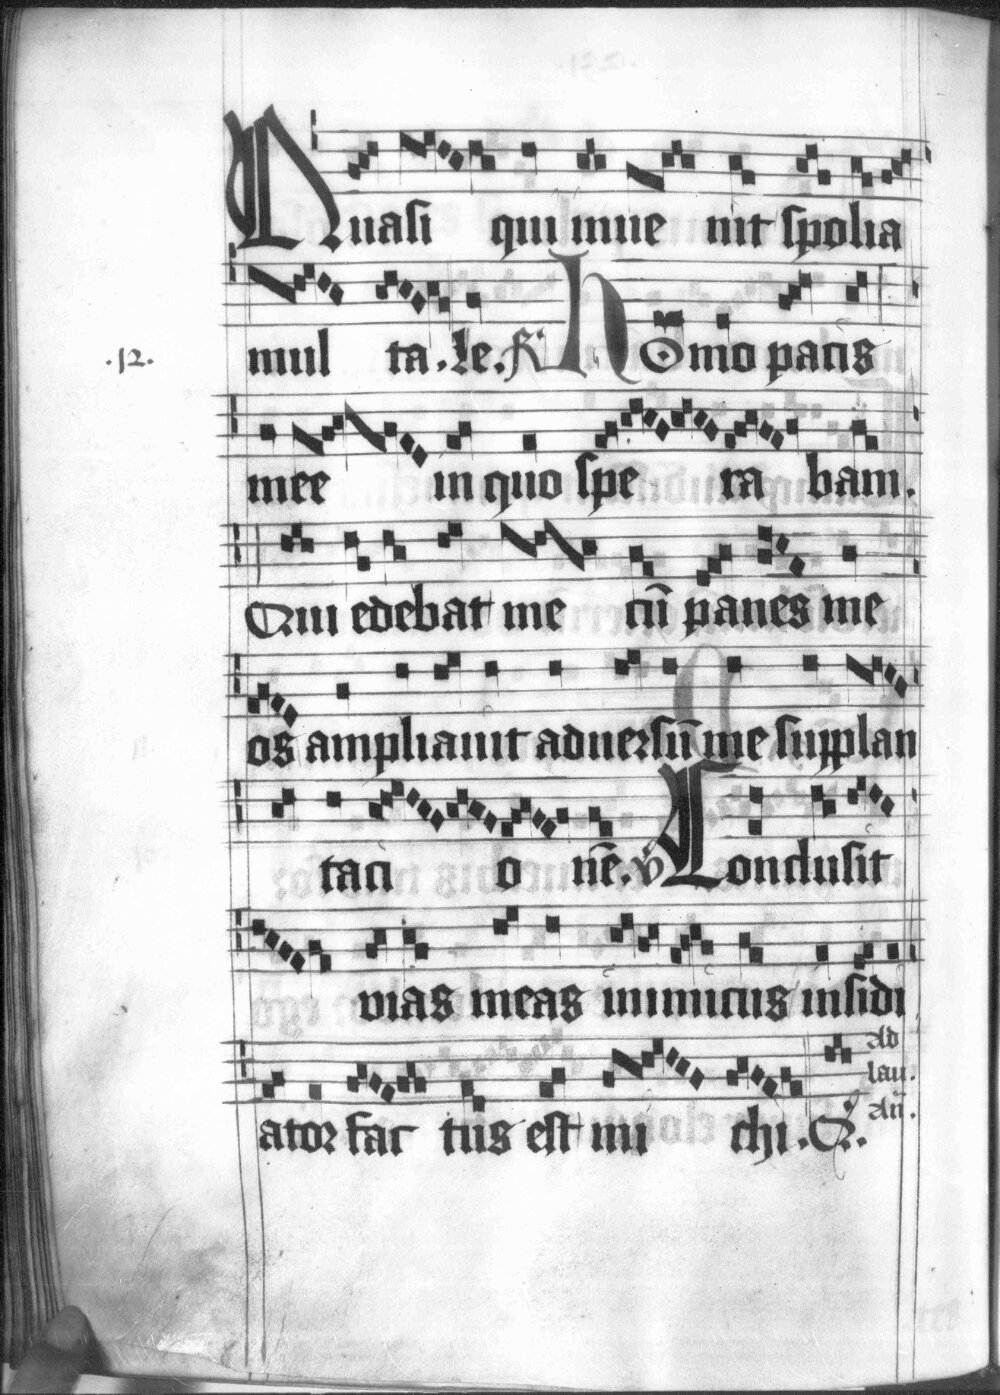 Quasi qui inue nit spolia
mul ta. le. R. homo pacis
.12.
mee in quo spe ra bam.
Qui edebat me cū panes me
os ampliauit aduersū me supplan
taci o nē. v Conclusit
vias meas inimicus insidi
ator fac tus est mi chi. Q.
ad
lau.
añ.